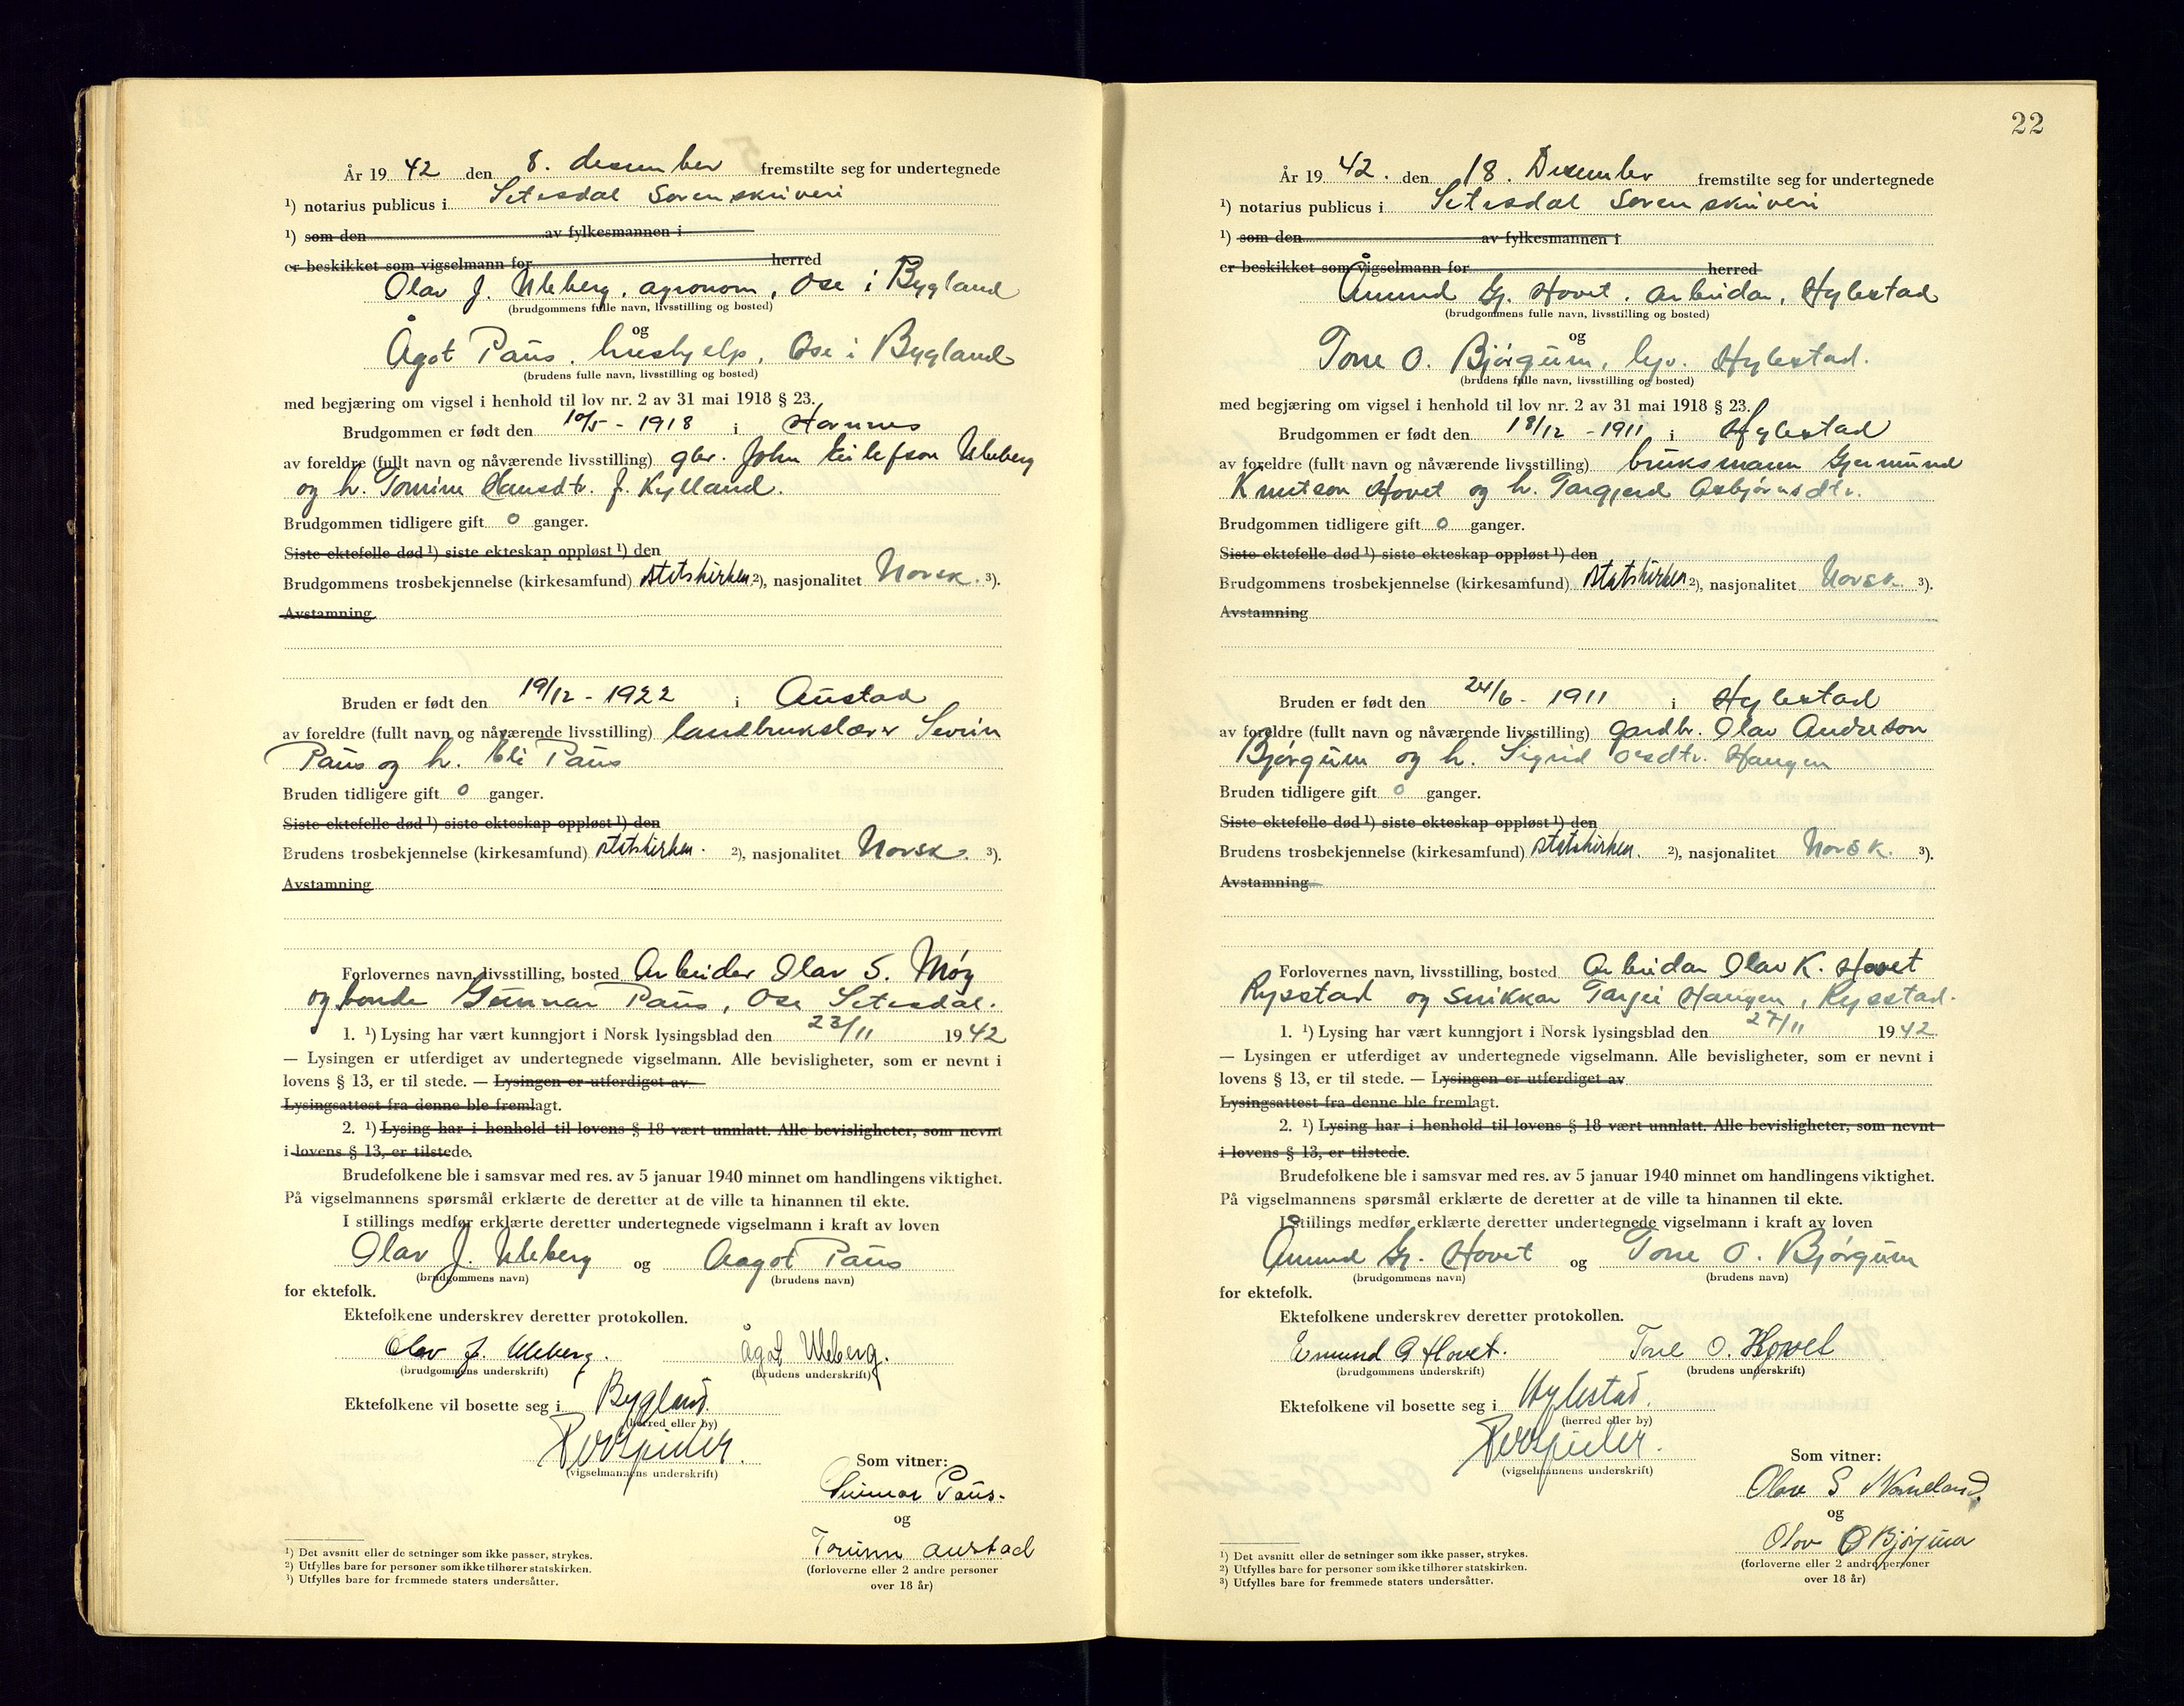 År 19 42 den 8. desember fremstilte seg for undertegnede
¹) notarius publicus i Setesdal Sorenskriveri
¹) som den av fylkesmannen i
er beskikket som vigselmann for herred
Olav J. Uleberg, agronom, Ose i Bygland
(brudgommens fulle navn, livsstilling og bosted)
og
Ågot Paus, hushjelp, Ose i Bygland
(brudens fulle navn, livsstilling og bosted)
med begjæring om vigsel i henhold til lov nr. 2 av 31 mai 1918 § 23.
Brudgommen er født den 10/5 - 1918 i Hornnes
av foreldre (fullt navn og nåværende livsstilling) gbr. John Eilefson Uleberg
og h. Tomine Hansdtr. f. Kylland.
Brudgommen tidligere gift 0 ganger.
Siste ektefelle død ¹) siste ekteskap oppløst ¹) den
Brudgommens trosbekjennelse (kirkesamfund) statskirken ²), nasjonalitet Norsk. ³).
Avstamning
Bruden er født den 19/12 - 1922 i Austad
av foreldre (fullt navn og nåværende livsstilling) landbrukslærer Severin
Paus og h. Eli Paus
Bruden tidligere gift 0 ganger.
Siste ektefelle død ¹) siste ekteskap oppløst ¹) den
Brudens trosbekjennelse (kirkesamfund) statskirken. ²), nasjonalitet Norsk. ³).
Avstamning
Forlovernes navn, livsstilling, bosted Arbeider Olav S. Møy
og bonde Gunnar Paus, Ose Setesdal.
1. ¹) Lysing har vært kunngjort i Norsk lysingsblad den 23/11 1942
— Lysingen er utferdiget av undertegnede vigselmann. Alle bevisligheter, som er nevnt i
lovens § 13, er til stede. — Lysingen er utferdiget av
Lysingsattest fra denne ble fremlagt.
2. ¹) Lysing har i henhold til lovens § 18 vært unnlatt. Alle bevisligheter, som nevnt
i lovens § 13, er tilstede.
Brudefolkene ble i samsvar med res. av 5 januar 1940 minnet om handlingens viktighet.
På vigselmannens spørsmål erklærte de deretter at de ville ta hinannen til ekte.
I stillings medfør erklærte deretter undertegnede vigselmann i kraft av loven
Olav J. Uleberg og Aagot Paus
(brudgommens navn) (brudens navn)
for ektefolk.
Ektefolkene underskrev deretter protokollen.
Olav J. Uleberg. Ågot Uleberg.
(brudgommens underskrift) (brudens underskrift)
Ektefolkene vil bosette seg i Bygland.
(herred eller by)
(vigselmannens underskrift)
Som vitner:
Gunnar Paus.
og
Torunn Austad
(forloverne eller 2 andre personer
over 18 år)
¹) Det avsnitt eller de setninger som ikke passer, strykes.
²) Utfylles bare for personer som ikke tilhører statskirken.
³) Utfylles bare for fremmede staters undersåtter.
22
År 19 42. den 18. Desember fremstilte seg for undertegnede
¹) notarius publicus i Setesdal Sorenskriveri
¹) som den av fylkesmannen i
er beskikket som vigselmann for herred
Åmund Gj. Hovet, arbeidar, Hylestad
(brudgommens fulle navn, livsstilling og bosted)
og
Tone O. Bjørgum, hjv. Hylestad.
(brudens fulle navn, livsstilling og bosted)
med begjæring om vigsel i henhold til lov nr. 2 av 31 mai 1918 § 23.
Brudgommen er født den 18/12 - 1911 i Hylestad
av foreldre (fullt navn og nåværende livsstilling) bruksmann Gjermund
Knutson Hovet og h. Targjerd Asbjørnsdtr.
Brudgommen tidligere gift 0 ganger.
Siste ektefelle død ¹) siste ekteskap oppløst ¹) den
Brudgommens trosbekjennelse (kirkesamfund) statskirken ²), nasjonalitet Norsk. ³).
Avstamning
Bruden er født den 24/6 - 1911 i Hylestad
av foreldre (fullt navn og nåværende livsstilling) gardbr. Olav Andreson
Bjørgum og h. Sigrid Olsdtr. Haugen
Bruden tidligere gift 0 ganger.
Siste ektefelle død ¹) siste ekteskap oppløst ¹) den
Brudens trosbekjennelse (kirkesamfund) statskirken. ²), nasjonalitet Norsk. ³).
Avstamning
Forlovernes navn, livsstilling, bosted Arbeidar Olav K. Hovet
Rysstad og snikkar Targei Haugen, Rysstad.
1. ¹) Lysing har vært kunngjort i Norsk lysingsblad den 27/11 1942.
— Lysingen er utferdiget av undertegnede vigselmann. Alle bevisligheter, som er nevnt i
lovens § 13, er til stede. — Lysingen er utferdiget av
Lysingsattest fra denne ble fremlagt.
2. ¹) Lysing har i henhold til lovens § 18 vært unnlatt. Alle bevisligheter, som nevnt
i lovens § 13, er tilstede.
Brudefolkene ble i samsvar med res. av 5 januar 1940 minnet om handlingens viktighet.
På vigselmannens spørsmål erklærte de deretter at de ville ta hinannen til ekte.
I stillings medfør erklærte deretter undertegnede vigselmann i kraft av loven
Åmund Gj. Hovet og Tone O. Bjørgum
(brudgommens navn) (brudens navn)
for ektefolk.
Ektefolkene underskrev deretter protokollen.
Åmund G Hovet. Tone O. Hovet
(brudgommens underskrift) (brudens underskrift)
Ektefolkene vil bosette seg i Hylestad.
(herred eller by)
(vigselmannens underskrift)
Som vitner:
Olav S
og
Olav O Bjørgum
(forloverne eller 2 andre personer
over 18 år)
¹) Det avsnitt eller de setninger som ikke passer, strykes.
²) Utfylles bare for personer som ikke tilhører statskirken.
³) Utfylles bare for fremmede staters undersåtter.